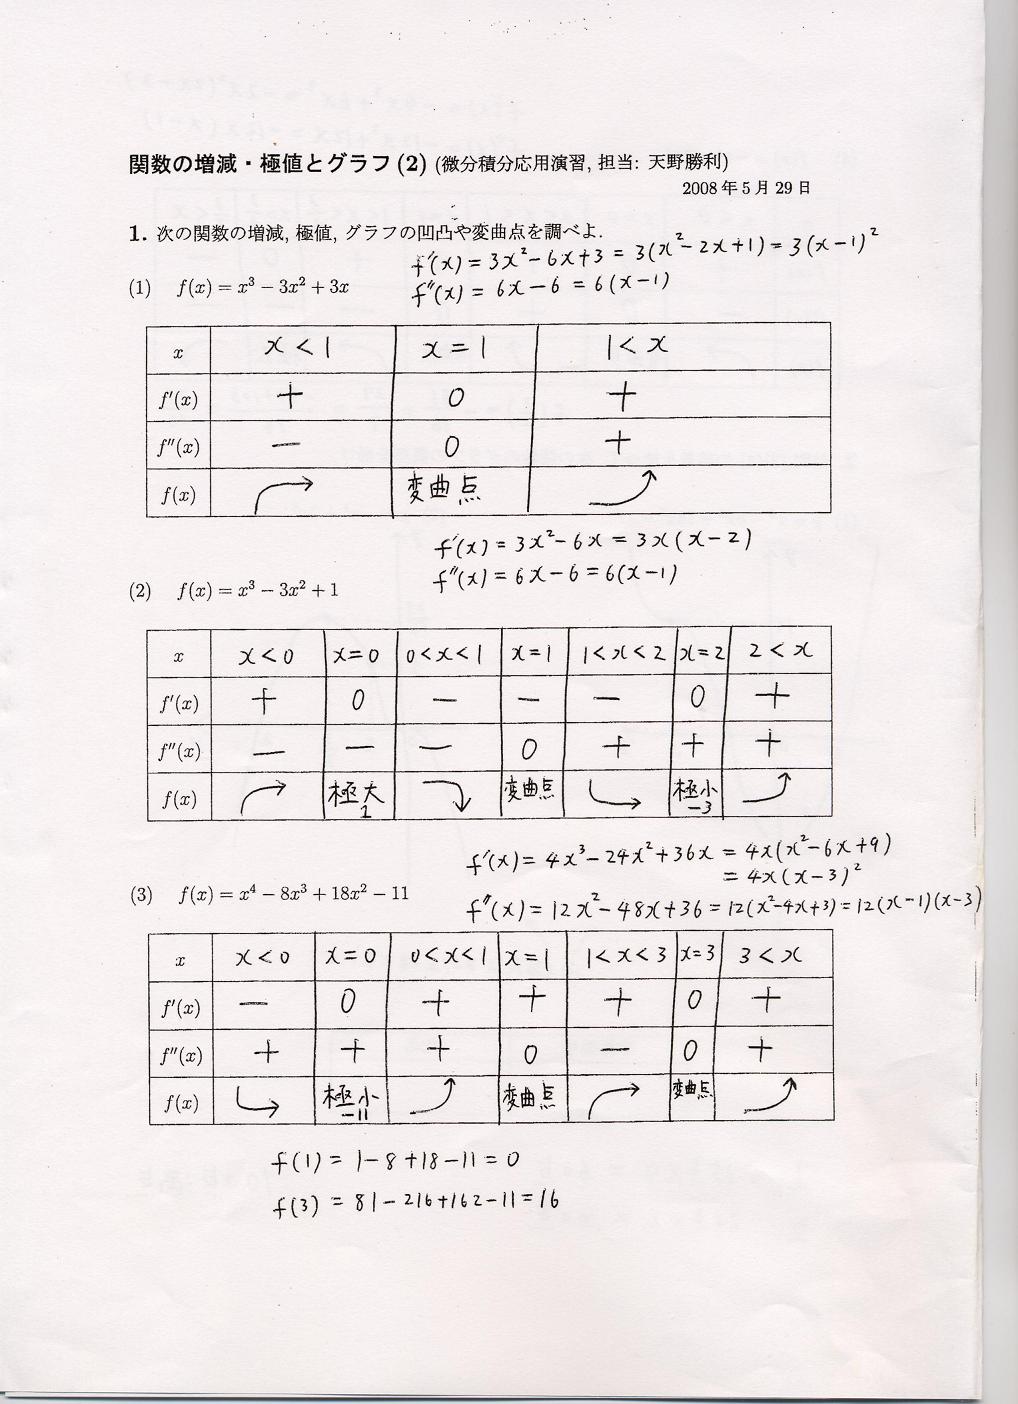 関数の増減・極値とグラフ (2) (微分積分応用演習, 担当: 天野勝利)
2008 年 5 月 29 日
1. 次の関数の増減, 極値, グラフの凹凸や変曲点を調べよ.
f'(x) = 3x² − 6x + 3 = 3(x² − 2x + 1) = 3(x − 1)²
(1) f(x) = x³ − 3x² + 3x
f''(x) = 6x − 6 = 6(x − 1)
x x < 1 x = 1 1 < x
f'(x) + 0 +
f''(x) − 0 +
f(x) 変曲点
f'(x) = 3x² − 6x = 3x(x − 2)
f''(x) = 6x − 6 = 6(x − 1)
(2) f(x) = x³ − 3x² + 1
x x < 0 x = 0 0 < x < 1 x = 1 1 < x < 2 x = 2 2 < x
f'(x) + 0 − − − 0 +
f''(x) − − − 0 + + +
f(x) 極大 変曲点 極小
1 −3
f'(x) = 4x³ − 24x² + 36x = 4x(x² − 6x + 9)
= 4x(x − 3)²
(3) f(x) = x⁴ − 8x³ + 18x² − 11
f''(x) = 12x² − 48x + 36 = 12(x² − 4x + 3) = 12(x − 1)(x − 3)
x x < 0 x = 0 0 < x < 1 x = 1 1 < x < 3 x = 3 3 < x
f'(x) − 0 + + + 0 +
f''(x) + + + 0 − 0 +
f(x) 極小 変曲点 変曲点
−11
f(1) = 1 − 8 + 18 − 11 = 0
f(3) = 81 − 216 + 162 − 11 = 16